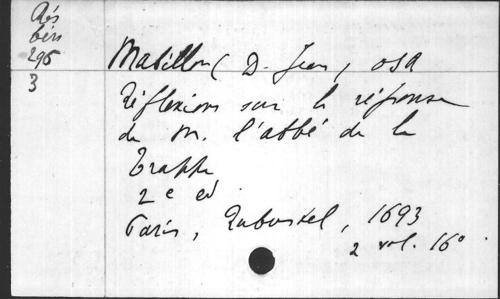 Rés
295
3
Mabillon (D. Jean) OSB
Réflexions sur la réponse
de M. l'abbé de la
Trappe
2e ed
Paris, Robustel, 1693
2 vol. 16°